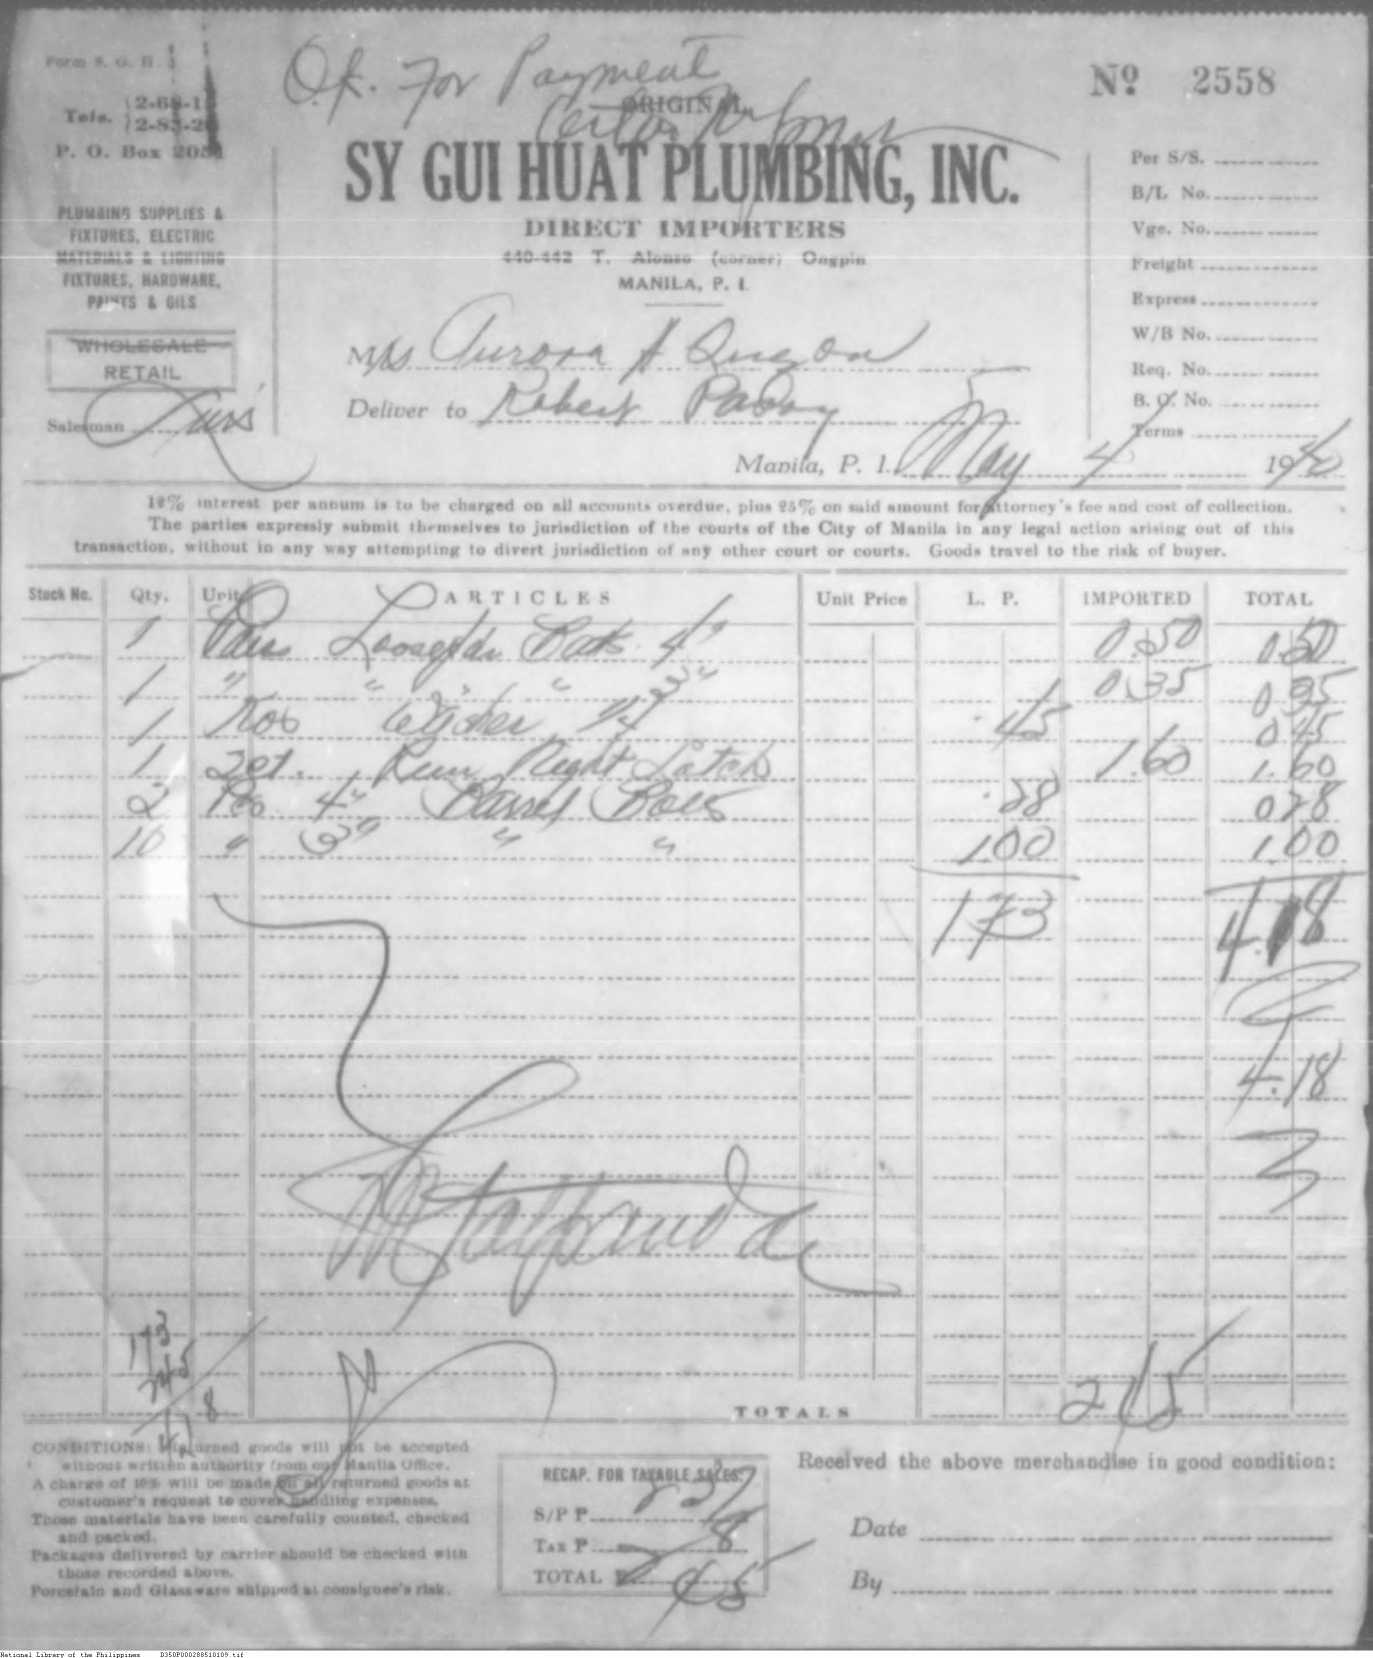 Form S. G. H. 1
O.K. For Payment
Nº 2558
ORIGINAL
Tels.
P. O. Box
SY GUI HUAT PLUMBING, INC.
DIRECT IMPORTERS
440-442 T. Alonso (corner) Ongpin
MANILA, P. I.
PLUMBING SUPPLIES &
FIXTURES, ELECTRIC
MATERIALS & LIGHTING
FIXTURES, HARDWARE,
PAINTS & OILS
WHOLESALE
RETAIL
Salesman Luis
Per S/S.
B/L No.
Vge. No.
Freight
Express
W/B No.
Req. No.
B. O. No.
Terms
Mrs Aurora A Quezon
Deliver to Robert
Manila, P. I. May 4 1940
12% interest per annum is to be charged on all accounts overdue, plus 25% on said amount for attorney's fee and cost of collection.
The parties expressly submit themselves to jurisdiction of the courts of the City of Manila in any legal action arising out of this
transaction, without in any way attempting to divert jurisdiction of any other court or courts. Goods travel to the risk of buyer.
Stock No. Qty. Unit ARTICLES Unit Price L. P. IMPORTED TOTAL
1 Pairs 4" 0.50 0.50
1 " " " " 3" 0.35 0.35
1 .45 0.45
1 Set. Rim Night Latch 1.60 1.60
2 Pcs 4" Barrel Bolts .28 0.28
10 " 3" " " 1.00 1.00
173 4.18
4.18
173
245
418
TOTALS 245
CONDITIONS: Returned goods will not be accepted
without written authority from our Manila Office.
A charge of 10% will be made on all returned goods at
customer's request to cover handling expenses.
Those materials have been carefully counted, checked
and packed.
Packages delivered by carrier should be checked with
those recorded above.
Porcelain and Glassware shipped at consignee's risk.
RECAP. FOR TAXABLE SALES
S/P P 237
TAX P 8
TOTAL P 245
Received the above merchandise in good condition:
Date
By
National Library of the Philippines D350P000288510109.tif